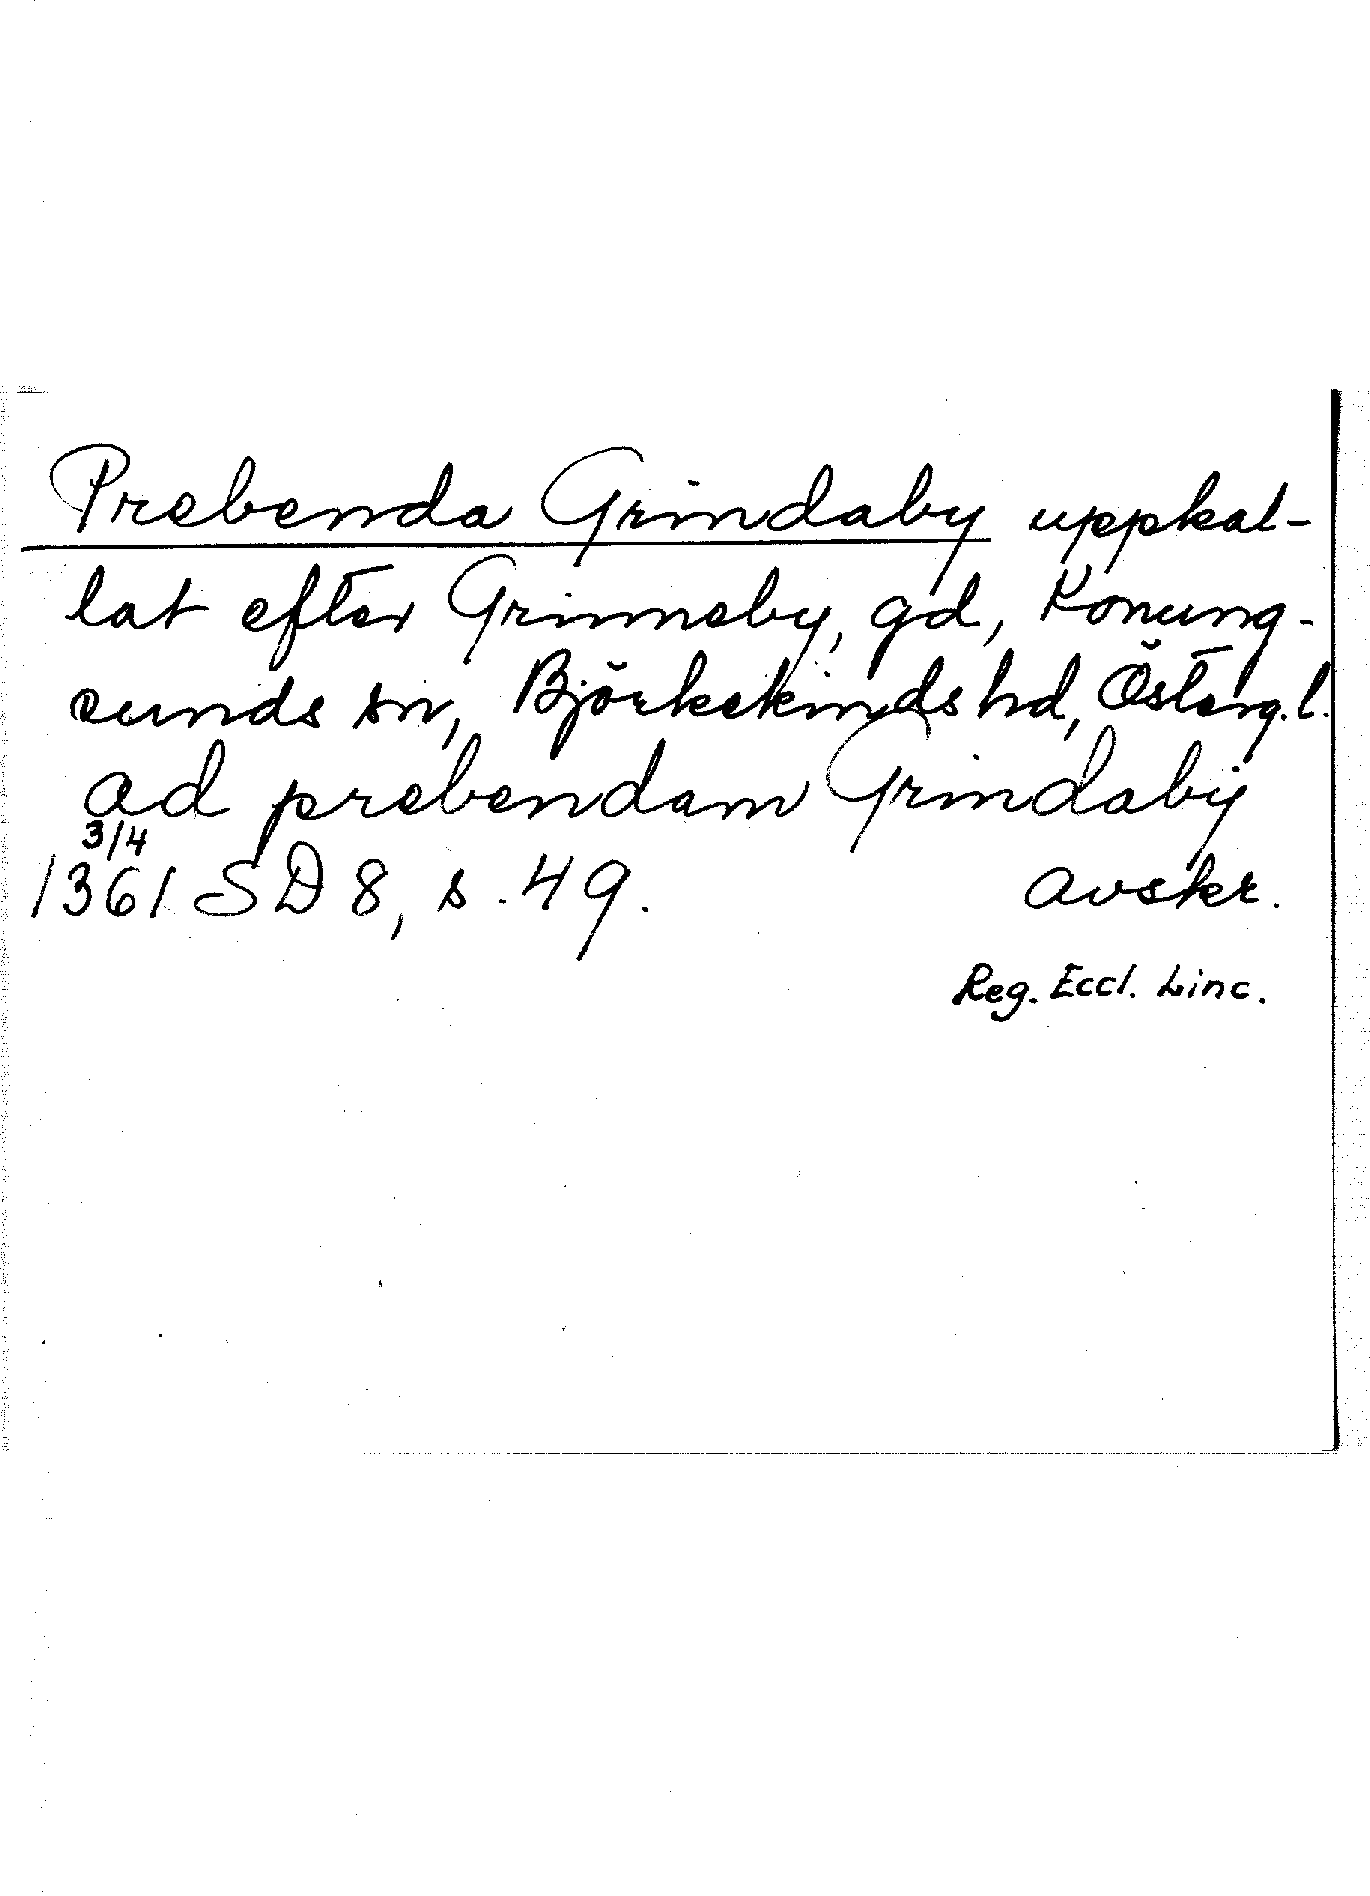 Prebenda Grindaby uppkal-
lat efter Grinneby, gd, Konung-
sunds sn, Björkekinds hd, Österg.l.
ad prebendam Grindaby
3/4
1361 SD 8, s. 49. avskr.
Reg. Eccl. Linc.